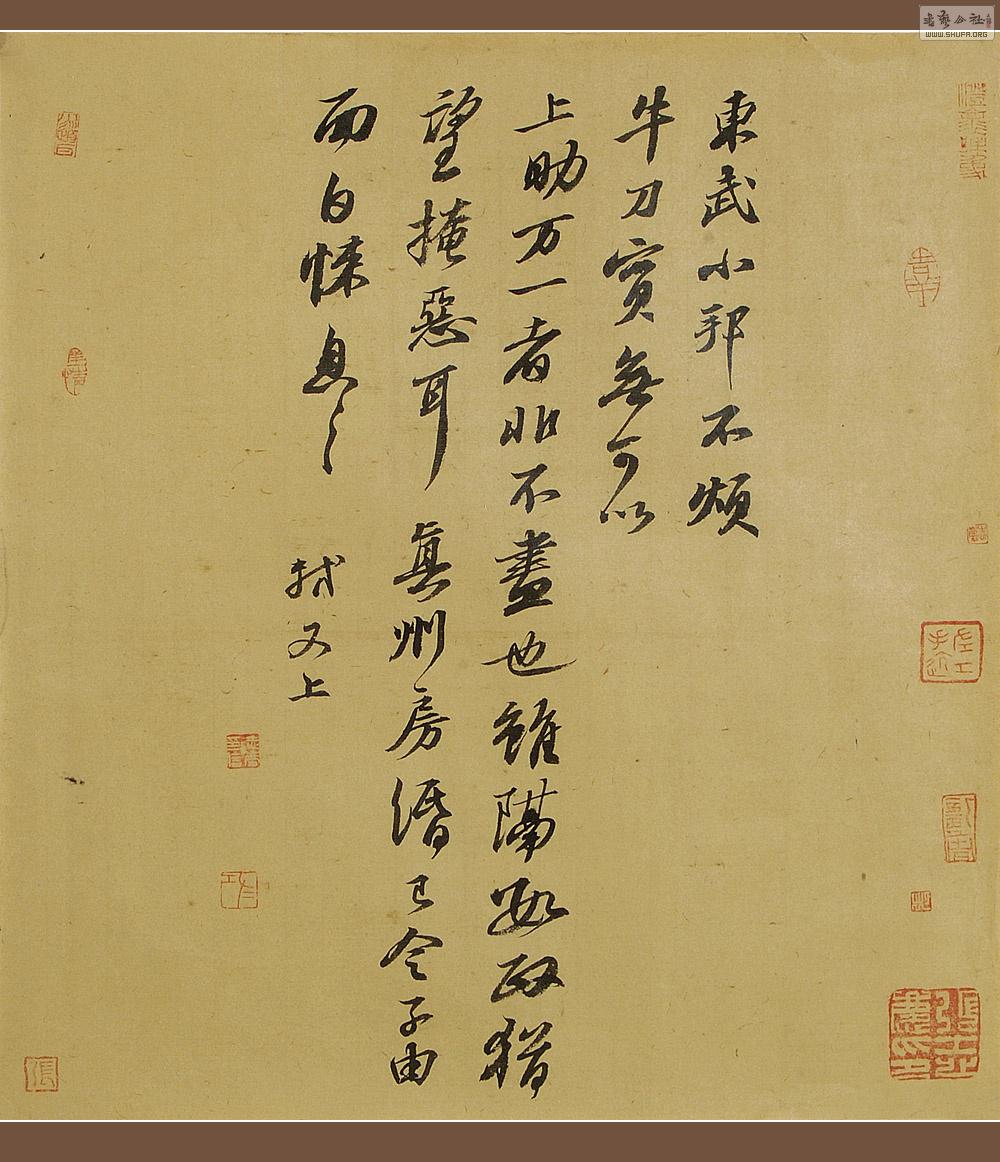 東武小邦不煩
牛刀實無可以
上助万一者非不盡也雖隔數政猶
望掩惡耳 真州房緡已令子由
面白悚息〻
軾又上
WWW.SHUFA.ORG